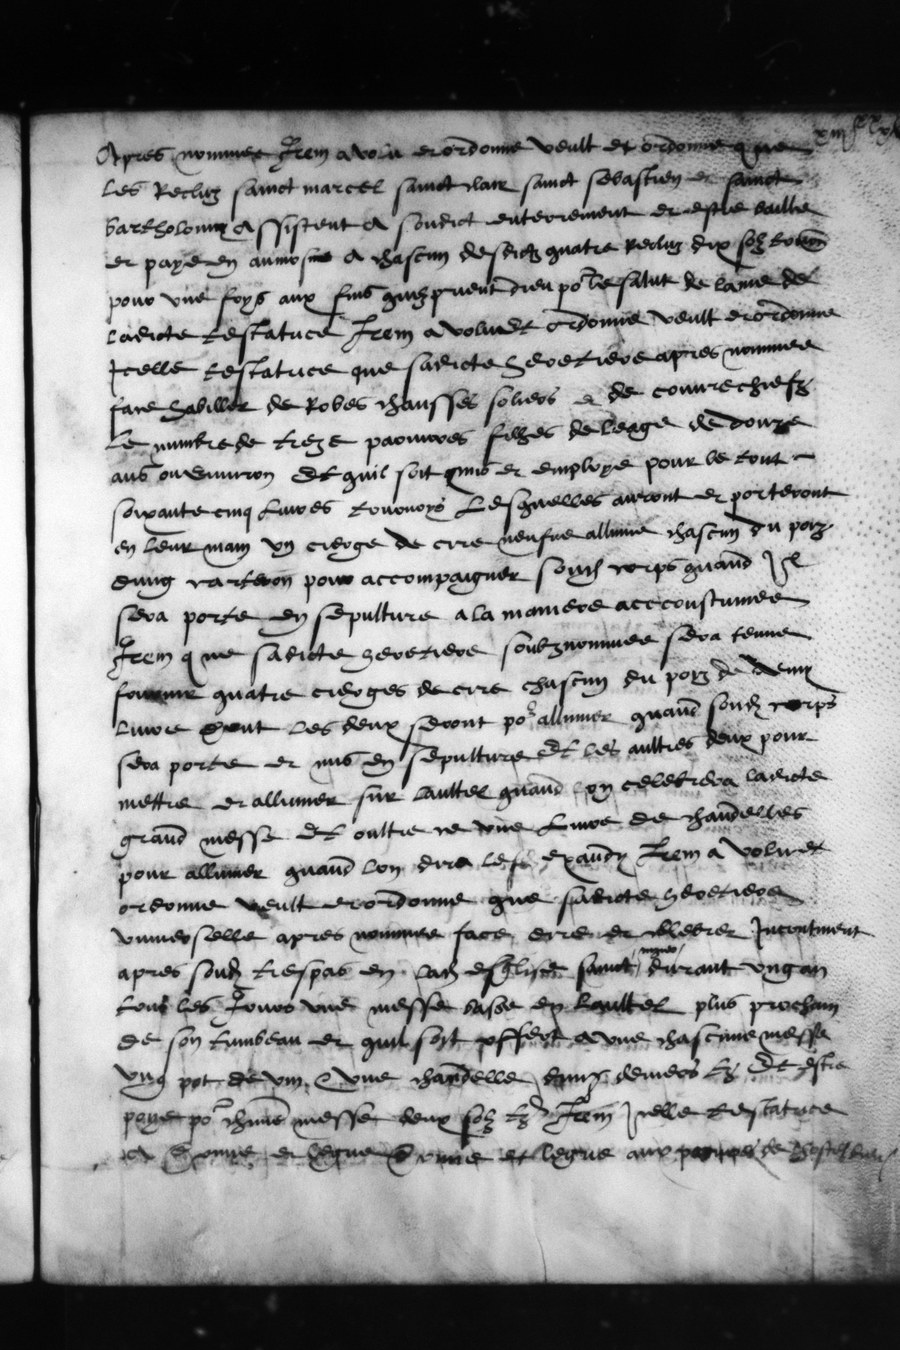 Apres nommee Item a volu et ordonne veult et ordonne que
les Recluz sainct marcel sainct clair sainct sebastien et sainct
bartholomy Assistent A sondict enterrement et estre baille
et paye en aumosne A chascun desdictz quatre Recluz dix solz tournois
pour une foys aux fins quilz prient dieu po le salut de lame de
ladicte testatrice Item a volu et ordonne veult et ordonne
Icelle testatrice que sadicte heretiere apres nommee
face habiller de Robes chausses soliers et de couvrechiefz
le numbre de treze paovvres filhes de leage de douze
ans ou environ Et quil soit mis et employe pour le tout
soixante cinq livres tournoys Lesquelles auront et porteront
en leur main ung cierge de cire neufve allume chascun du poix
dung carteron pour accompaigner sond corps quand Il
sera porte en sepulture a la maniere accoustumee
Item que sadicte heretiere soubznommee sera tenue
fournir quatre cierges de cire chascun du poix de deux
livre dont les deux seront po allumer quand sond corps
sera porte et mis en sepulture Et les aultres deux pour
mettre et allumer sur laultel quand lon celebrera ladicte
grand messe Et oultre ce une livre de chandelles
pour allumer quand lon dira les exaudy Item a volu et
ordonne veult et ordonne que sadicte heretiere
universelle apres nommee face dire et celebrer Incontinent
apres sond trespas en lad esglise sainct durant ung an
tous les Jours une messe basse en laultel plus prochain
de son tumbeau et quil soit offert a une chascune messe
ung pot de vin & une chandelle deniers tz Et estre
paye po chune messe deux solz tz Item Icelle testatrice
A donne et legue donne et legue aux de lhostel